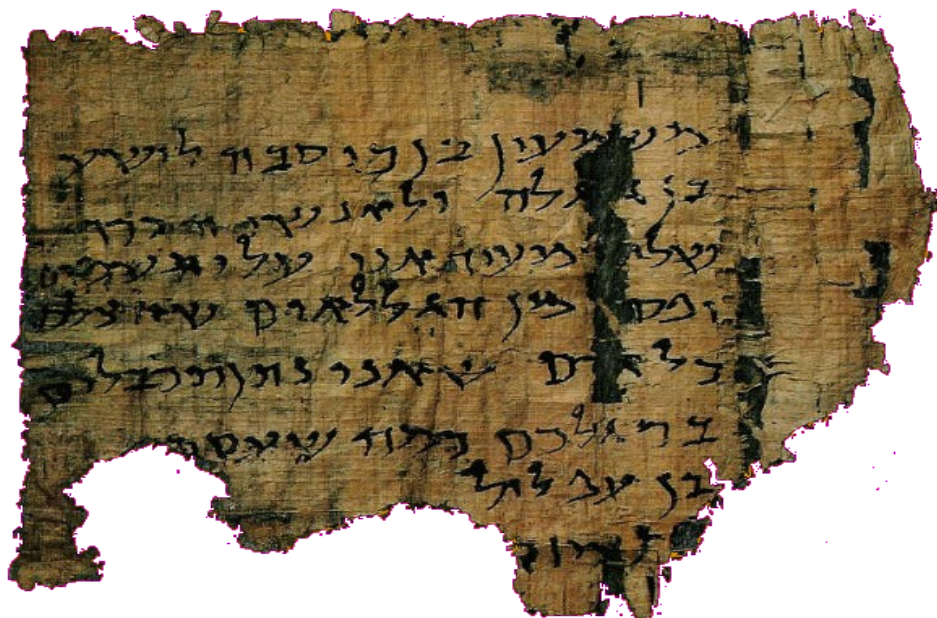 משמעון בן כוסבה לישע
בן גלגלה ולאנשי הכרך
שלום מעיד אני עלי תשמים
יפס מן הגללאים שהצלכם
כל אדם שאני נתן תכבלים
ברגלכם כמה שעסתי
לבן עפלול